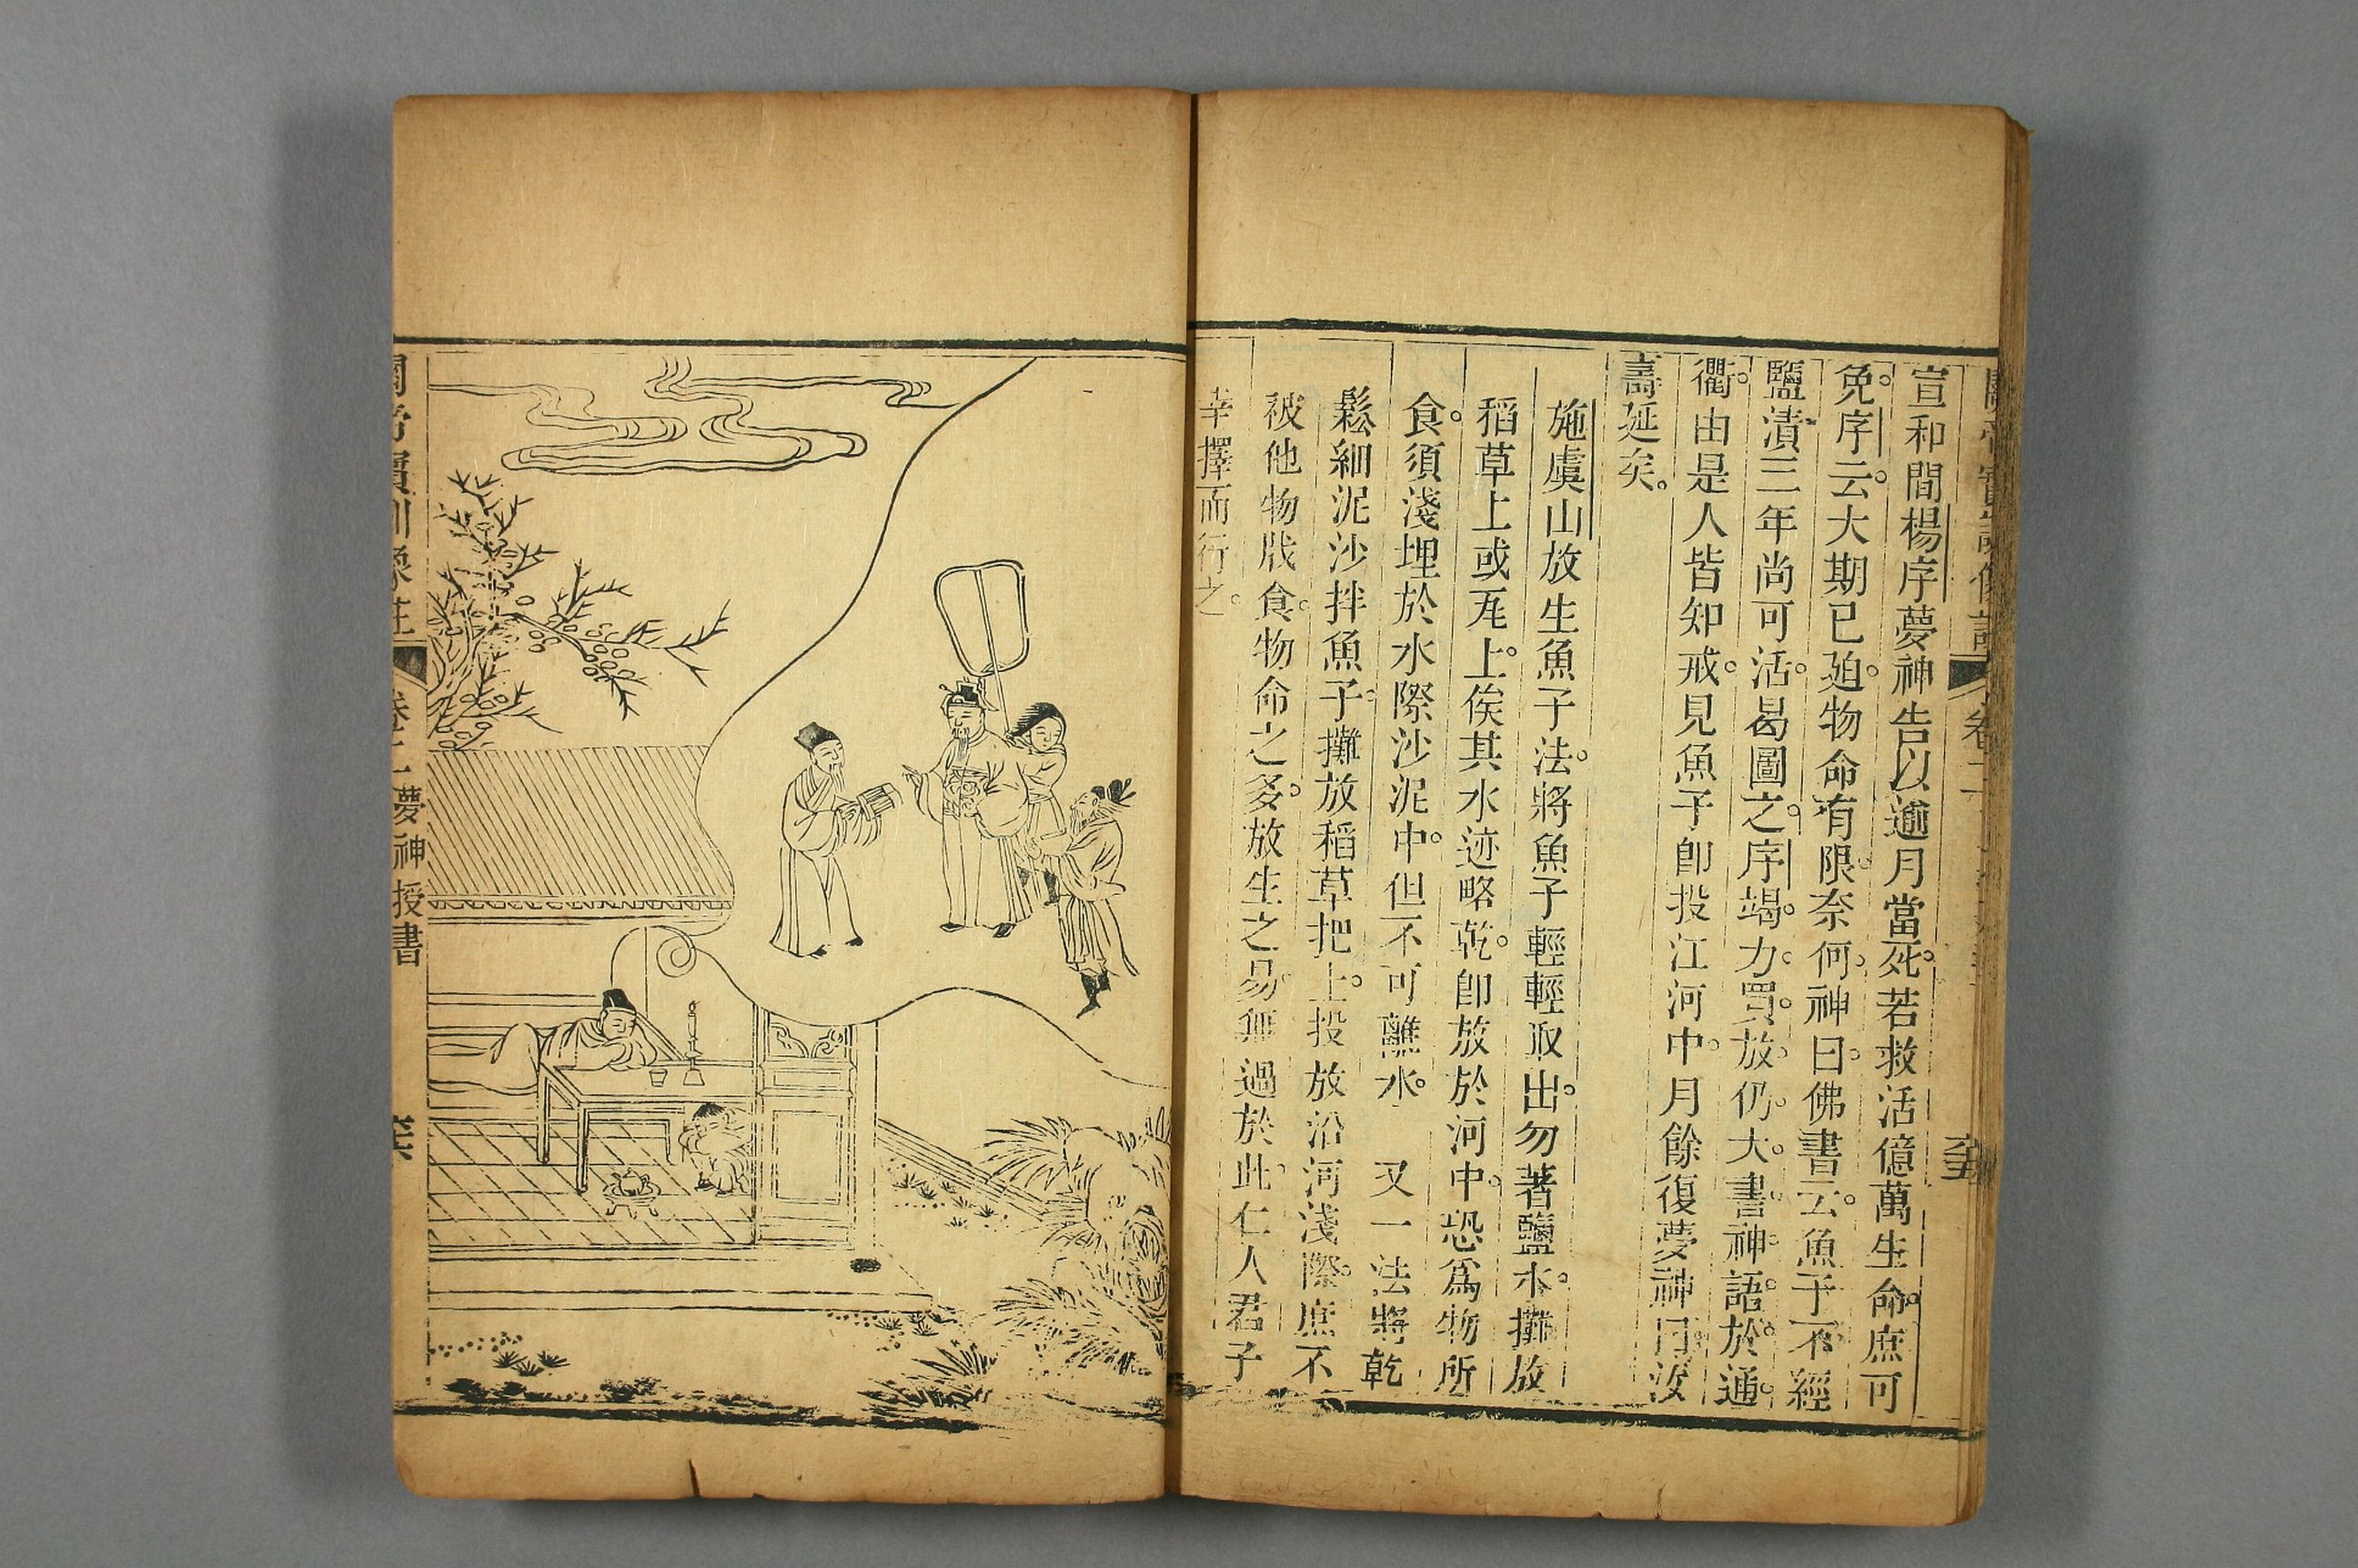 宣和間楊序夢神告以逾月當死。若救活億萬生命。庶可
免。序云。大期已廹。物命有限。奈何。神曰。佛書云。魚子不經
鹽漬。三年尚可活。曷圖之。序竭。力。買。放。仍。大。書。神。語。於。通。
衢。由是人皆知戒。見魚子卽投江河中。月餘復夢神曰。
壽延矣。
施虞山放生魚子法。將魚子輕輕取出。勿著鹽水。攤放
稻草上或瓦上。俟其水迹略乾。卽放於河中。恐爲物所
食。須淺埋於水際沙泥中。但不可離水。 又一法將乾
鬆細泥沙拌魚子。攤放稻草把上。投放沿河淺際。庶不
被他物戕食。物命之多。放生之易。無過於此。仁人君子
幸擇而行之。
關帝寳訓像註 卷二 夢神授書